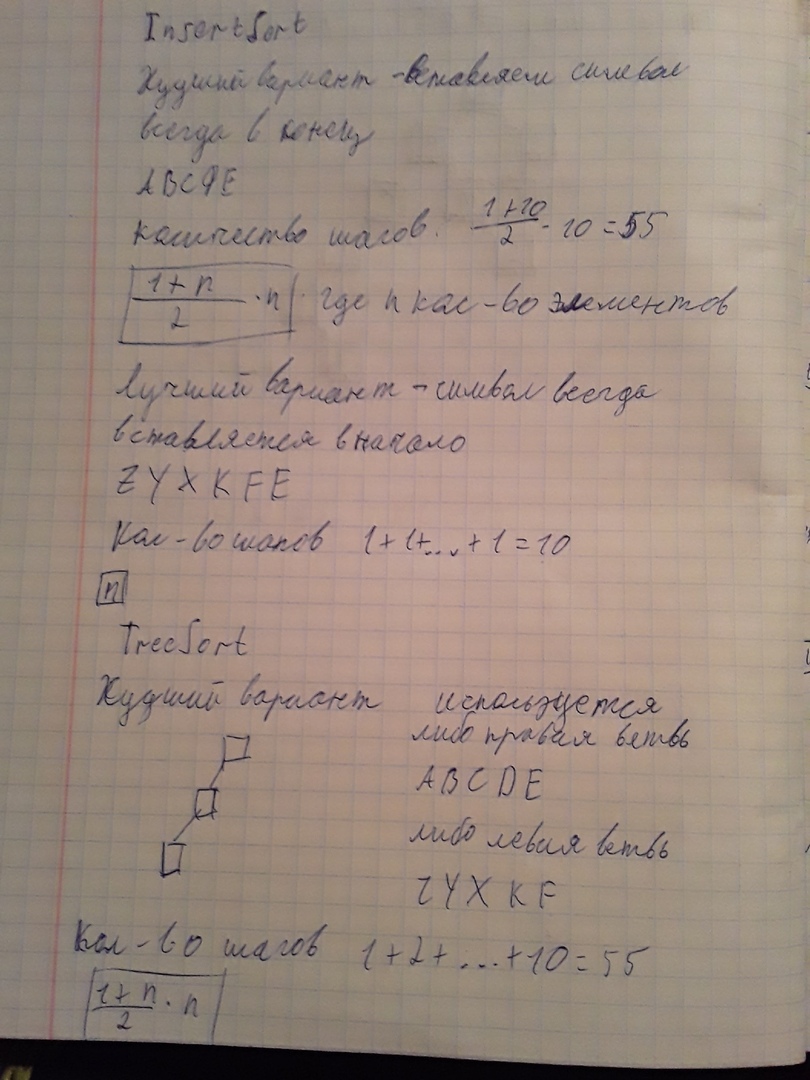 InsertSort
Худший вариант - вставляем символ
всегда в конец
ABCDE
количество шагов. (1+10)/2 · 10 = 55
(1+n)/2 · n где n кол-во элементов
Лучший вариант - символ всегда
вставляется в начало
Z Y X K F E
Кол-во шагов 1+1+...+1=10
n
TreeSort
Худший вариант используется
либо правая ветвь
A B C D E
либо левая ветвь
Z Y X K F
Кол-во шагов 1+2+...+10=55
(1+n)/2 · n